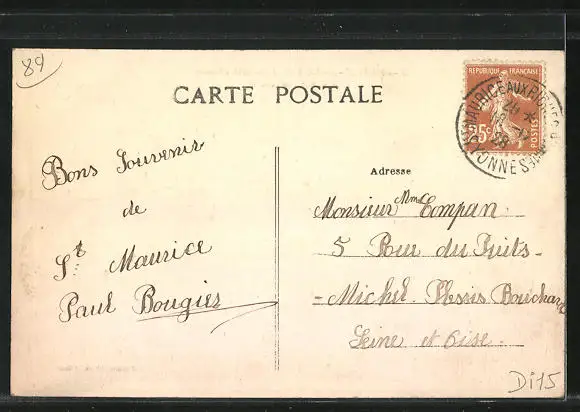 89
CARTE POSTALE
Bons Souvenir
de
St Maurice
Paul Bougies
REPUBLIQUE FRANÇAISE
25c
POSTES
MAURICE AUX RICHES
24
YONNE
Adresse
Monsieur Mme Compan
5 Rue du Puits-
-Michel. Plessis Bouchard
Seine et Oise.-
Di15